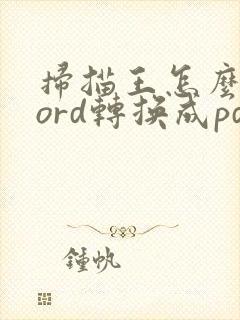 掃描王怎麼
ord轉換成pd
鍾帆